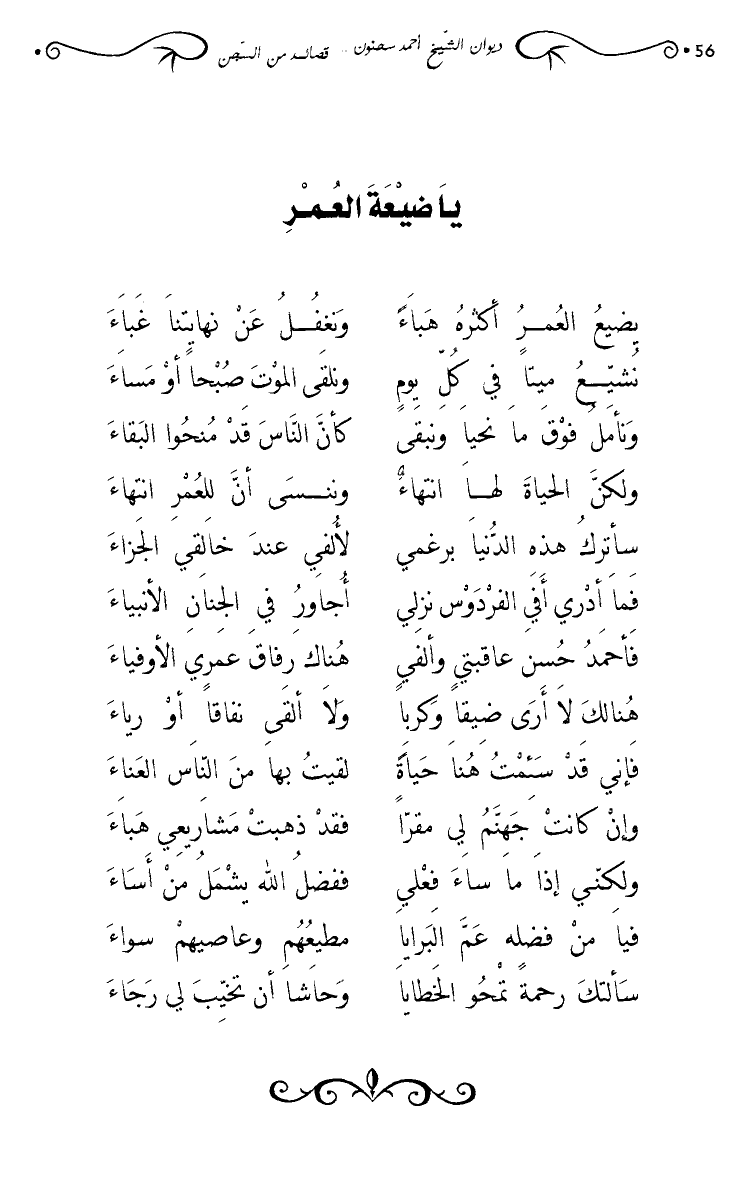 56 ديوان الشّيخ أحمد سحنون .. قصائد من السّجن
ياَ ضيْعَةَ العُمْرِ
يضيعُ العُمرُ أكثرهُ هَباءً ونَغفُلُ عَنْ نهايتناَ غَباءَ
نُشيّعُ ميتاً في كُلّ يومٍ ونلقى الموْتَ صُبْحاً أوْ مَساءَ
وَنأملُ فوْق ماَ نحياَ ونبقى كأنَّ النَّاسَ قدْ مُنحُوا البَقاءَ
ولكنَّ الحياةَ لهاَ انتهاءٌ وننسَى أنَّ للعُمْرِ انتهاءَ
سأتركُ هذه الدُّنياَ برغمي لأُلفي عندَ خالقي الجَزاءَ
فَما أدْري أفي الفرْدَوْس نزلي أُجاورُ في الجنانِ الأنبياءَ
فَأحمدُ حُسن عاقبتي وألفي هُناك رفاقَ عمرِي الأوفياءَ
هُنالكَ لاَ أرَى ضيقاً وَكرباً وَلاَ ألقى نفاقاً أوْ رياءَ
فَإني قدْ سَئمْتُ هُناَ حَياةً لقيتُ بهاَ منَ النّاسِ العَناءَ
وإنْ كانتْ جَهنَّمُ لي مقرّاً فقدْ ذهبتْ مَشاريعي هَباءَ
ولكنّني إذاَ ماَ ساءَ فعْلي ففضلُ الله يشْمَلُ منْ أَسَاءَ
فيا منْ فضله عَمَّ البَراياَ مطيعُهُم وعاصيهمْ سواءَ
سَألتكَ رحمةً تمْحُو الخطاياَ وَحاشاَ أن تخيّبَ لي رَجَاءَ